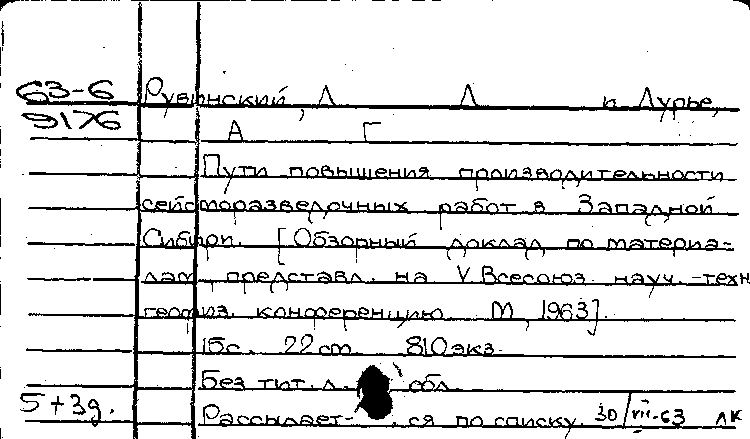 63-6 Рувинский, Л Л и Лурье,
9176 А Г
Пути повышения производительности
сейсморазведочных работ в Западной
Сибири. [Обзорный доклад по материа-
лам, представл. на V Всесоюз. науч.-техн
геофиз. конференцию. М, 1963].
15с. 22 см. 810 экз.
Без тит. л. обл.
5+3д. Рассылает- ся по списку. 30/VII-63 ЛК